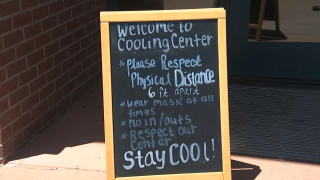 Welcome to
Cooling Center
* Please Respect
Physical Distance
6 ft apart
* Wear mask at all
times
* No in/outs
* Respect our
Center
Stay COOL!